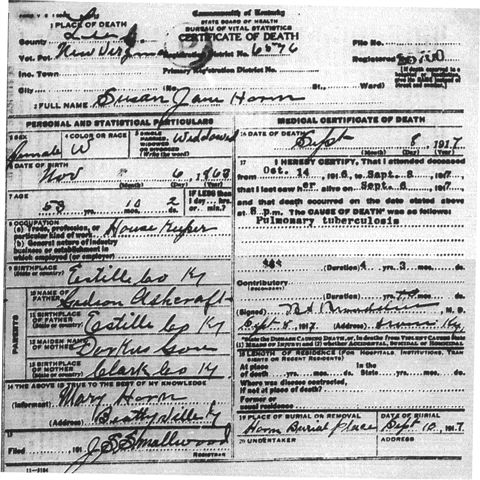 Commonwealth of Kentucky
STATE BOARD OF HEALTH
BUREAU OF VITAL STATISTICS
CERTIFICATE OF DEATH
1 PLACE OF DEATH
County
Vot. Pct. Registration District No. 6576
File No.
Registered
Inc. Town Primary Registration District No.
City No. St., Ward)
2 FULL NAME Susan Jane Horn
PERSONAL AND STATISTICAL PARTICULARS
3 SEX Female
4 COLOR OR RACE W
5 SINGLE MARRIED WIDOWED OR DIVORCED (Write the word) Widowed
6 DATE OF BIRTH
Nov 6, 1863
(Month) (Day) (Year)
7 AGE
53 yrs. 10 mos. 2 ds.
IF LESS than 1 day, hrs. or min.?
8 OCCUPATION
(a) Trade, profession, or particular kind of work House Keeper
(b) General nature of industry business or establishment in which employed (or employer)
9 BIRTHPLACE (State or country) Estille Co Ky
PARENTS
10 NAME OF FATHER Ashcraft
11 BIRTHPLACE OF FATHER (State or country) Estille Co Ky
12 MAIDEN NAME OF MOTHER Dorkus
13 BIRTHPLACE OF MOTHER (State or country) Clark Co Ky
14 THE ABOVE IS TRUE TO THE BEST OF MY KNOWLEDGE
(Informant) Mary Horn
(Address) Beattyville Ky
15
Filed 191 J S Smallwood
REGISTRAR
11-3184
MEDICAL CERTIFICATE OF DEATH
16 DATE OF DEATH
Sept 8, 1917
(Month) (Day) (Year)
17 I HEREBY CERTIFY, That I attended deceased
from Oct. 14, 1916, to Sept. 8, 1917
that I last saw her alive on Sept. 6, 1917
and that death occurred on the date stated above
at 8 p.m. The CAUSE OF DEATH was as follows:
Pulmonary tuberculosis
(Duration) 4 yrs. 3 mos. ds.
Contributory
(Secondary)
(Duration) yrs. mos. ds.
(Signed) M. D.
Sept 8, 1917 (Address) Ky
State the DISEASE CAUSING DEATH, or, in deaths from VIOLENT CAUSES state (1) MEANS OF INJURY and (2) whether ACCIDENTAL, SUICIDAL or HOMICIDAL.
18 LENGTH OF RESIDENCE (FOR HOSPITALS, INSTITUTIONS, TRANSIENTS OR RECENT RESIDENTS)
At place of death yrs. mos. ds. In the State yrs. mos. ds.
Where was disease contracted, if not at place of death?
Former or usual residence
19 PLACE OF BURIAL OR REMOVAL
Horn Burial place
DATE OF BURIAL
Sept 10, 1917
20 UNDERTAKER
ADDRESS